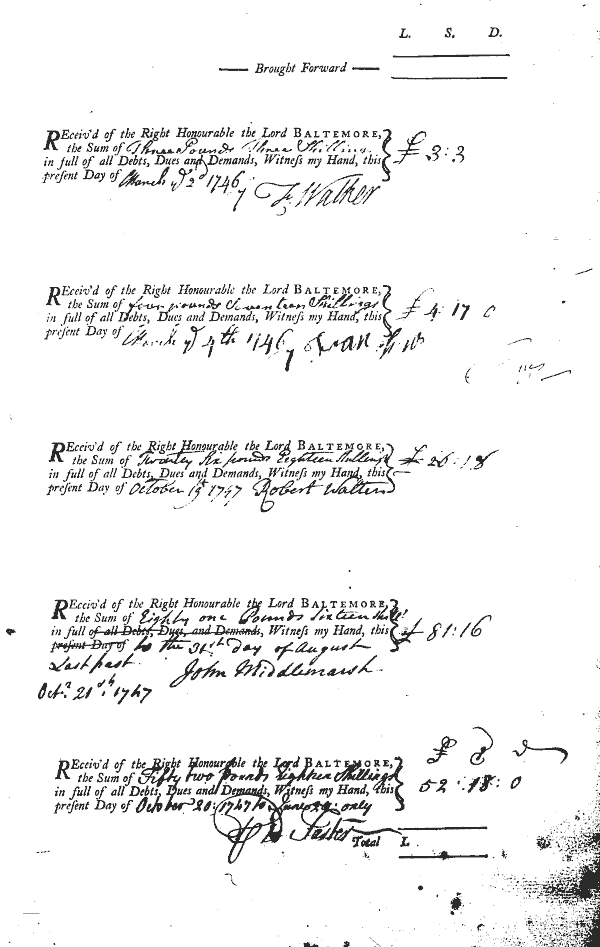 L. S. D.
Brought Forward
REceiv'd of the Right Honourable the Lord BALTEMORE,
the Sum of Three Pounds Three Shilling
in full of all Debts, Dues and Demands, Witneſs my Hand, this
preſent Day of March ye 2d 1746/7
£ 3:3
Walker
REceiv'd of the Right Honourable the Lord BALTEMORE,
the Sum of four pounds Seventeen Shillings
in full of all Debts, Dues and Demands, Witneſs my Hand, this
preſent Day of March ye 4th 1746/7
£ 4 17 0
REceiv'd of the Right Honourable the Lord BALTEMORE,
the Sum of Twenty Six pounds Eighteen Shillings
in full of all Debts, Dues and Demands, Witneſs my Hand, this
preſent Day of October 19 1747 Robert Walters
£ 26:18
REceiv'd of the Right Honourable the Lord BALTEMORE,
the Sum of Eighty one Pounds Sixteen
in full of all Debts, Dues, and Demands, Witneſs my Hand, this
preſent Day of to the 31st day of August
£ 81:16
Last past John Middlemarsh
Octr 21st 1747
£ S D
REceiv'd of the Right Honourable the Lord BALTEMORE,
the Sum of Fifty two Pounds Eighteen Shillings
in full of all Debts, Dues and Demands, Witneſs my Hand, this
preſent Day of October 20: 1747 to June 24: only
52:18:0
Total L